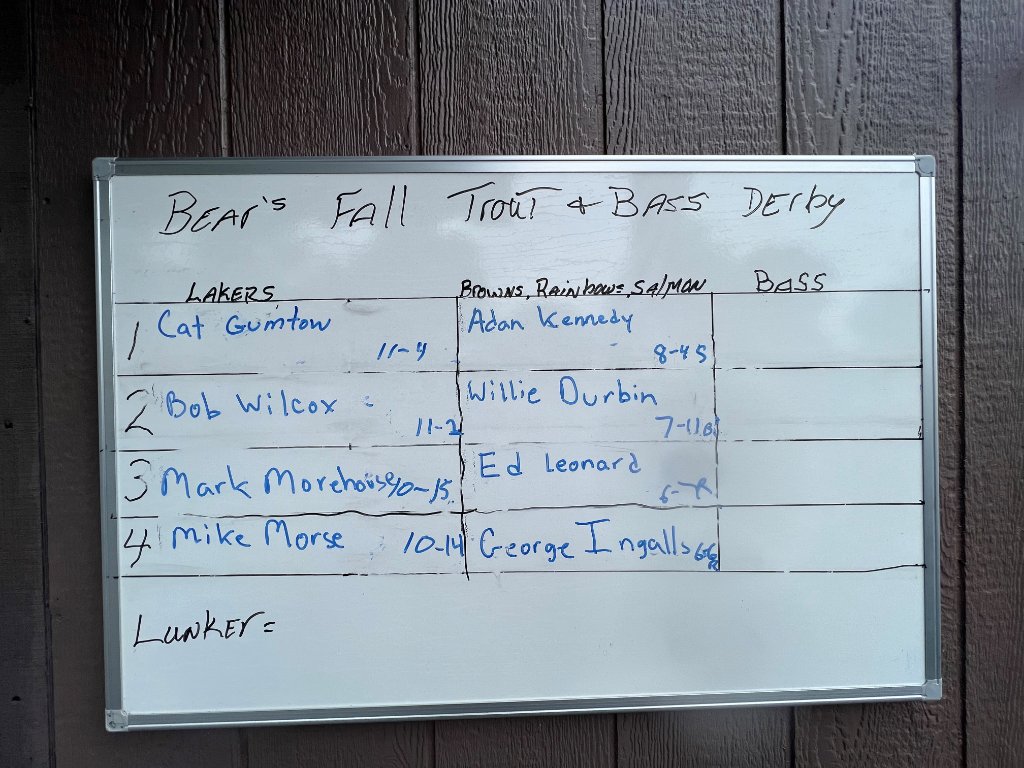 BEAr's FAll TrouT & BASS DErby
LAKERS BROWNS, RAINbows, SAlMON BASS
1 Cat Gumtow 11-4 Adan Kennedy 8-4 S
2 Bob Wilcox 11-2 Willie Durbin 7-11 B
3 Mark Morehouse 10-15 Ed Leonard 6-7 R
4 Mike Morse 10-14 George Ingalls 6-6 R
LUNKEr =